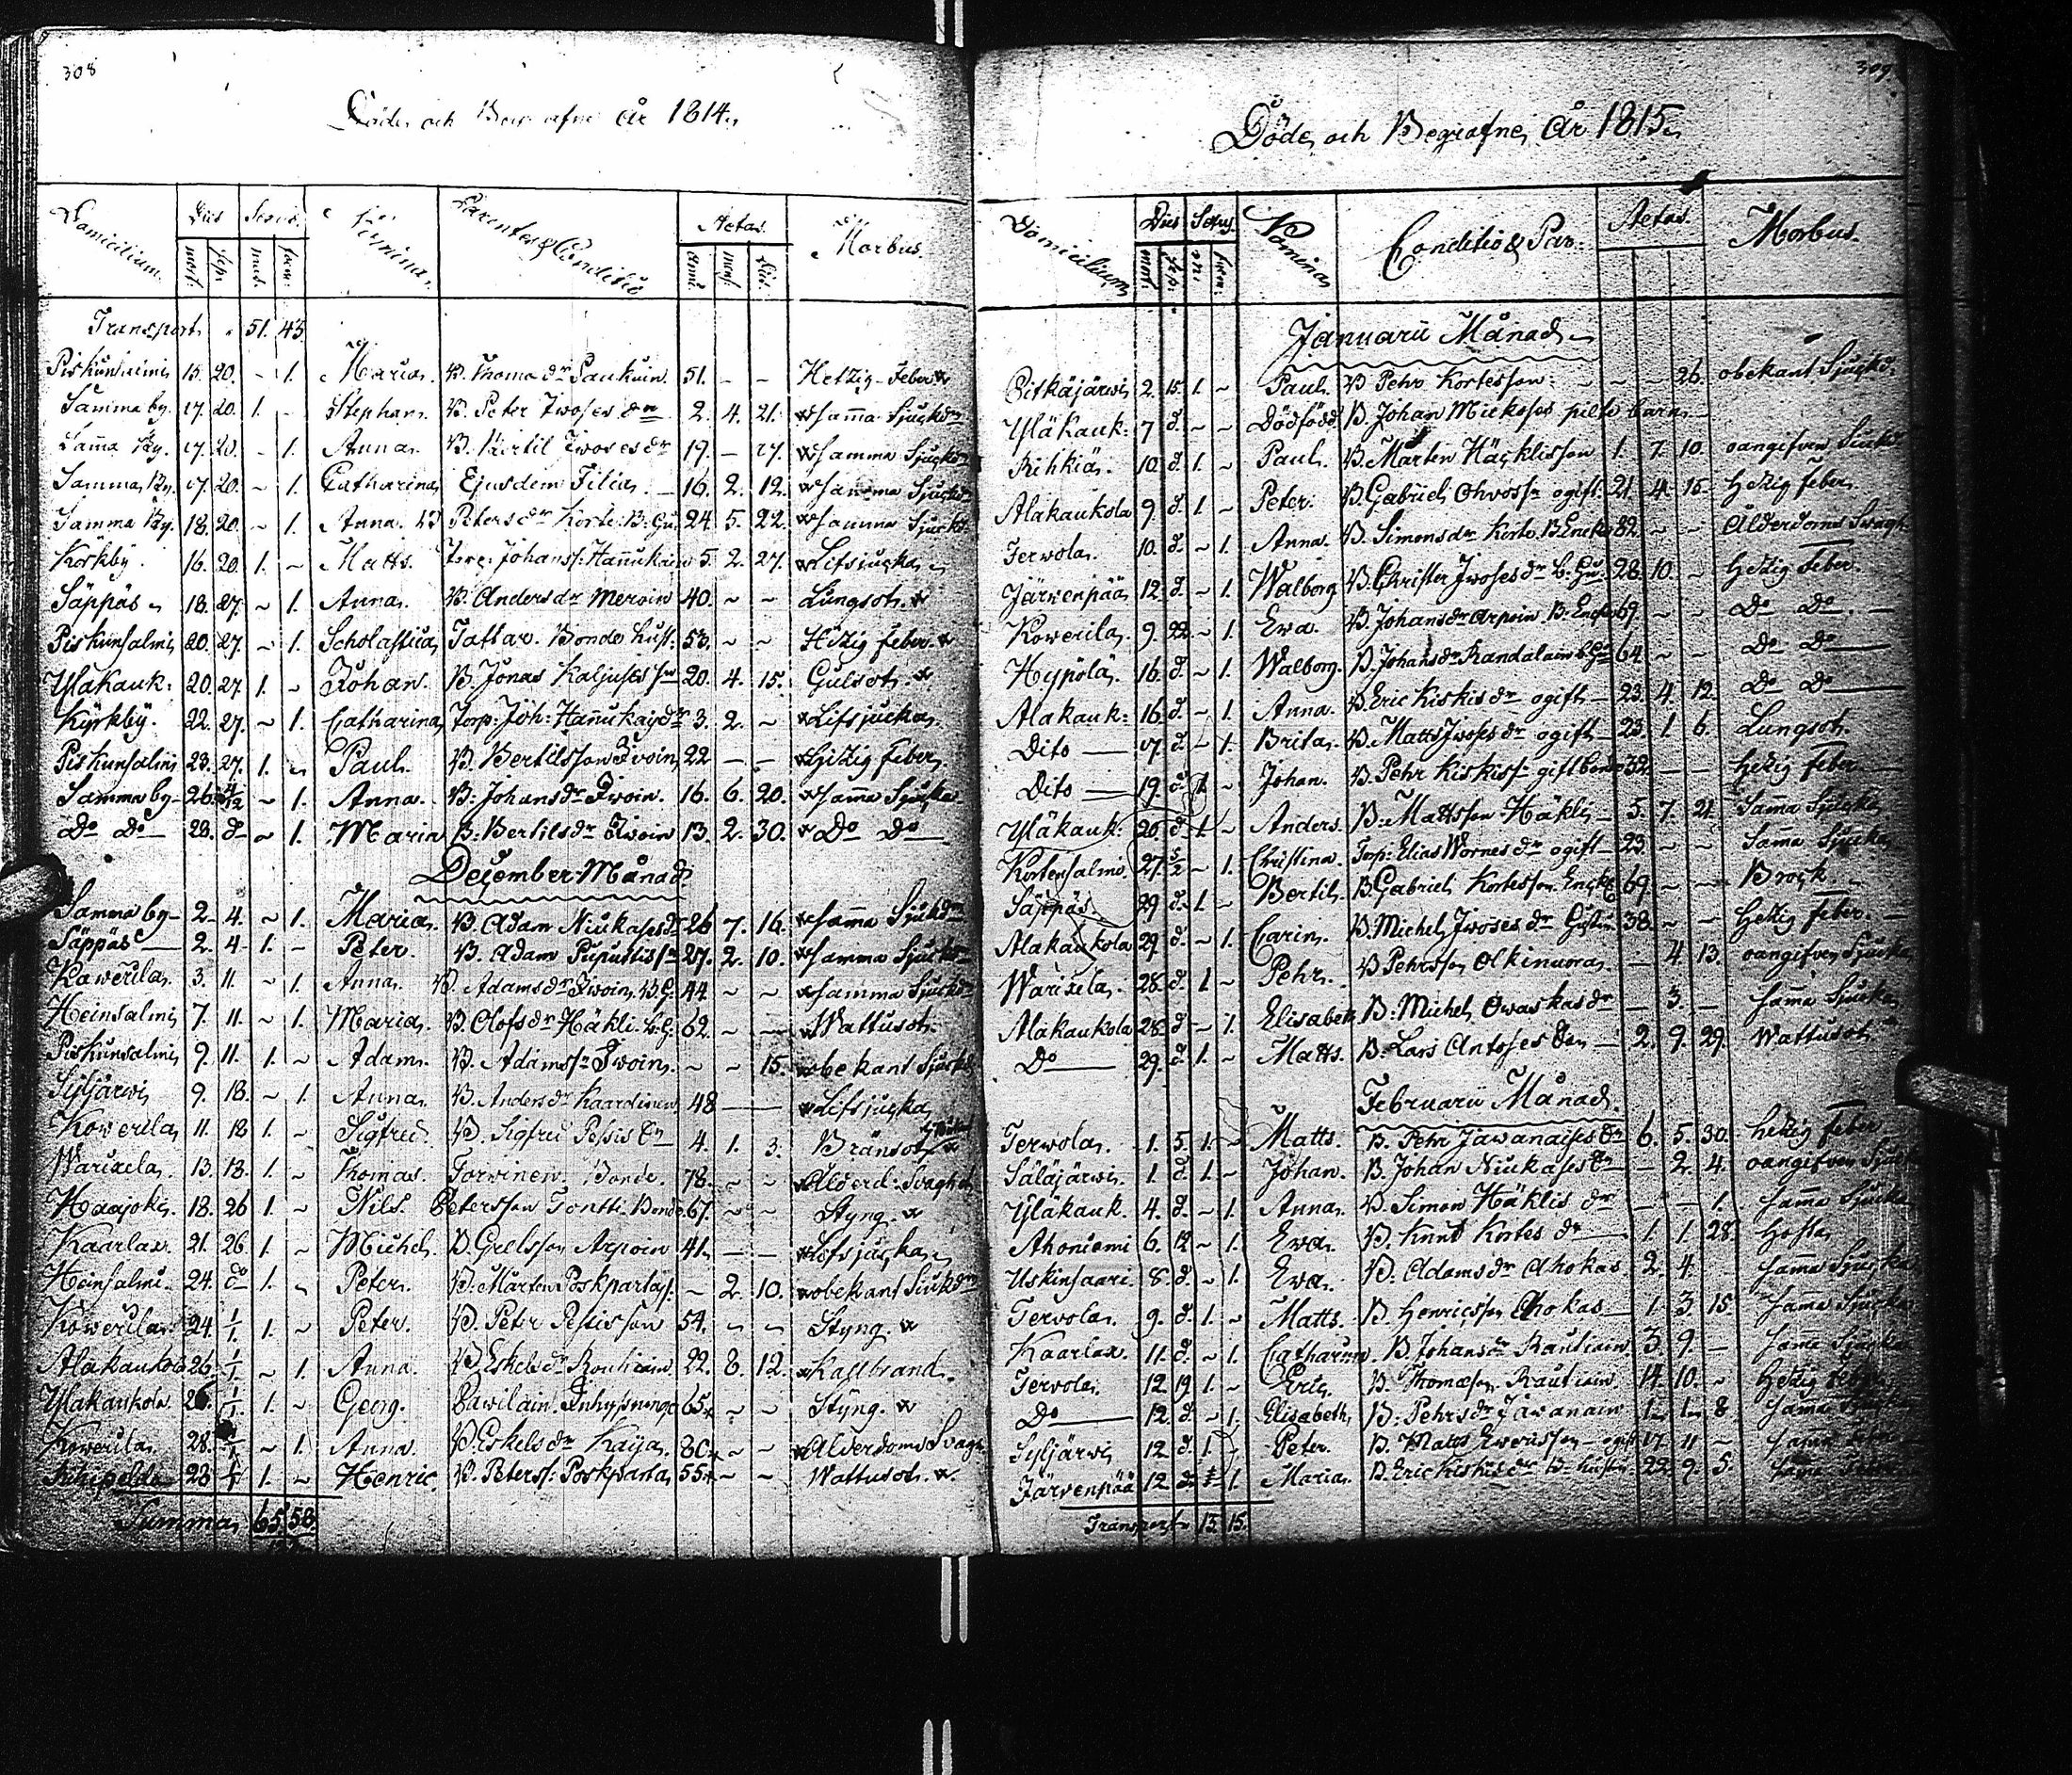 308
Döde och Begrafne År 1814.
Domicilium. Dies Sexus. Nomina. Parentes & Conditio Aetas. Morbus.
mort. sep. mas. fœm. anni. mens. dies.
Transport 51. 45.
Piskunsalmi 15. 20. - 1. Maria. B. Thoma dr Paukuin. 51. - - Hetzig Feber
Samma by. 17. 20. 1. - Stephan. B. Peter Iwoses dn 2. 4. 21. Samma Sjukdm
Samma By. 17. 20. - 1. Anna. B. Bertil Iwoses dr 19. - 27. Samma Sjukdm
Samma By. 17. 20. - 1. Catharina Ejusdem Filia. 16. 2. 12. Samma Sjukdm
Samma By. 18. 20. - 1. Anna. Petersdr Korte: B: Gu. 24. 5. 22. Samma Sjukd
Kÿrkbÿ. 16. 20. 1. - Matts. Torp: Johanss: Hannukain 5. 2. 27. Lifsjuka
Säppäs 18. 27. - 1. Anna. B. Andersdr Meroin 40. - - Lungsot.
Piskunsalmi 20. 27. - 1. Scholastica Tattar. Bonde Hust: 53. - - Hitzig feber.
Yläkauk: 20. 27. 1. - Johan. B. Jonas Kaljuses sn 20. 4. 15. Gulsot.
Kÿrkbÿ. 22. 27. - 1. Catharina Torp: Joh: Hannukaisdr 3. 2. - Lifsjuka
Piskunsalmi 23. 27. 1. - Paul. B. Bertilsson Iwoin 22 - - Hitzig feber
Samma by 26. 4/12 - 1. Anna. B: Johansdr Iwoin. 16. 6. 20. Samma Sjuka
Do Do 28. d - 1. Maria B. Bertilsdr Iwoin 13. 2. 30. Do Do
December Månad
Samma by 2. 4. - 1. Maria. B. Adam Niukasesdr 26 7. 16. Samma Sjukdm
Säppäs 2. 4. 1. - Peter. B. Adam Puputtis sn 27. 2. 10. Samma Sjukdm
Kawerila. 3. 11. - 1. Anna. B. Adamsdr Iwoin. B. G. 44. - - Samma Sjukdm
Heinsalmi 7. 11. - 1. Maria. B. Olofsdr Häkli. b. G. 62. - - Wattusot.
Piskunsalmi 9. 11. 1. - Adam. B. Adamssn Iwoin. - - 15. obekant Sjukd
Syljärwi 9. 18. - 1. Anna. B. Andersdr Kaardinen 48 - - Lifsjuka
Kowerila 11. 18 1. - Sigfred. B. Sigfred Pessis sn 4. 1. 3. Bränsot
Warixela. 13. 18. 1. - Thomas. Torvinen. Bonde. 78. - - Ålderd: Svaghet
Haajoki. 18. 26 1. - Nils. Petersson Tontti. Bonde. 67. - - Styng.
Kaarlax. 21. 26 1. - Michel. B. Grelsson Arpoin 41. - - Lifsjuka
Heinsalmi. 24. do 1. - Peter. B. Mårten Poskpartas - 2. 10. obekant Siukdm
Kowerila. 24. 1/1. 1. - Peter. B. Peter Pessisson 54. - - Styng.
Alakaukola 26. 1/1 - 1. Anna. B. Eskelsdr Routiain. 22. 8. 12. Kallbrand.
Yläkaukola 26. 1/1. 1. - Georg. Pawilain. Inhysning 65. - - Styng.
Kowerila. 28. 1/1 - 1. Anna. B. Eskelsdr Kaija. 80. - - Ålderdoms Svagh
28. 1/1 1. - Henric B. Peterss: Poskparta 55. - - Wattusot.
Summa 65. 58.
309
Döde och Begrafne År 1815.
Domicilium Dies Sexus Nomina Conditio & Par: Aetas. Morbus.
mort. sep: fœm:
Januarii Månad
Pitkäjärwi 2. 15. 1. - Paul. B. Pehr Kortesson - - 26. obekant Sjukd:
Yläkauk: 7 d. - - Dödfödd B. Johan Mickoses pilte barn
Rihkiä. 10. d. 1. - Paul. B. Mårten Häcklisson 1. 7. 10. oangifven Siukd
Alakaukola 9. d. 1 - Peter. B. Gabriel Ohvossn ogift. 21. 4. 15. Hetzig feber.
Terwola. 10. d. - 1. Anna. B. Simonsdr Korte. B Enck 82. - - Ålderdoms Svagh
Järwenpää 12. d. - 1. Walborg B. Christer Iwoses dr b. Gu. 28. 10. - Hetzig feber.
Kowerila. 9. 22. - 1. Ewa. B. Johansdr Arpoin B. Enck 69. - - Do Do
Hypölä. 16. d. - 1. Walborg. B. Johansdr Randalain b. Gu 64. - - Do Do
Alakauk: 16. d. - 1. Anna. B. Eric Kiskis dr ogift 23. 4. 12. Do Do
Dito 17 d. - 1. Brita. B. Matts Iwoses dr ogift 23. 1. 6. Lungsot.
Dito 19 d. 1 - Johan. B. Pehr Kiskiss: gift bonde 32. - - hetzig feber
Yläkauk: 26. d. 1. - Anders. B: Mattsson Häkli 5. 7. 21. Samma Sjukd
Kortensalmi. 27. 5/2 - 1. Christina. Torp: Elias Wornes dr ogift 23. - - Samma Sjuka
Säppäs. 29 d. 1. - Bertil. B. Gabriel Kortesson Enck. 69. - - Brock.
Alakaukola 29. d. - 1. Carin. B. Michel Iwoses dr 38. - - Hetzig feber.
Warixela. 28. d. 1 - Pehr. B Pehrsson Olkinuora. - 4. 13. oangifven Sjuka
Alakaukola 28. d - 1. Elisabeth B: Michel Owaskas dr - 3. - Samma Sjuka
Do 29. d. 1. - Matts. B. Lars Antoses Son 2. 9. 29. Wattusot.
Februarii Månad.
Terwola. 1. 5. 1. - Matts. B. Pehr Jäwanaises Sn 6. 5. 30. hetzig feber
Saläjärwi. 1. d. 1. - Johan. B. Johan Niukases Sn - 2. 4. oangifven Sjuk
Yläkauk. 4. d. - 1. Anna. B. Simon Häklis dr - - 1. Samma Sjuka
Ahoniemi 6. 12 - 1. Ewa. B. Knut Kortes dr 1. 1. 28. Hosta
Uskinsaari. 8. d. - 1. Ewa. B. Adamsdr Ahokas 2. 4. Samma Sjuka
Terwola. 9. d. 1. - Matts. B. Henricsson Ahokas 1. 3. 15. Samma Sjuka
Kaarlax. 11. d. - 1. Catharina. B. Johansdr Rautiain. 3. 9. - Samma Sjuka
Terwola. 12. 19. 1. - Eric. B. Thomæson Rautiain. 14. 10. - Hetzig feber
Do 12. d. - 1. Elisabeth, B: Pehrsdr Jäwanain 1. 1. 8. Samma Sjuka
Syljärwi 12. d. 1. - Peter. B. Matts Ewerisson 17. 11 - Samma
Järwenpää 12. d. 1. Maria. B. Eric Kiskis dr 22. 9. 5. Samma
Transport 13. 15.